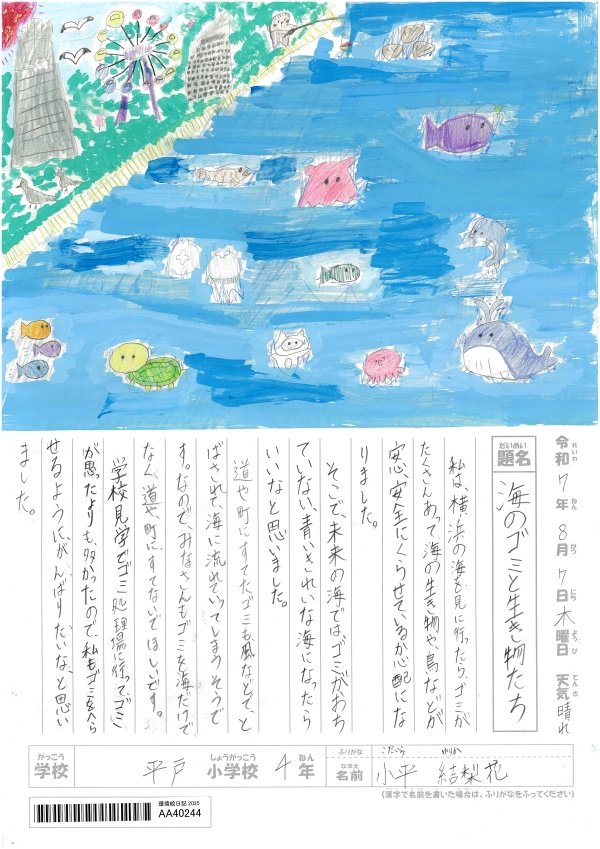 令和7年8月7日木曜日 天気 晴れ
れいわ ねん がつ にち ようび てんき
だいめい
題名
海のゴミと生き物たち
私は、横浜の海を見に行ったら、ゴミが
たくさんあって海の生き物や、鳥などが
安心、安全にくらせているか心配にな
りました。
そこで、未来の海では、ゴミがおち
ていない青いきれいな海になったら
いいなと思いました。
道や町にすてたゴミも、風などで、と
ばされて、海に流れていってしまうそうで
す。なので、みなさんもゴミを海だけで
なく、道や町に、すてないでほしいです。
学校見学でゴミ処理場に行って、ゴミ
が思ったよりも、多かったので、私もゴミをへら
せるように、がんばりたいな、と思い
ました。
がっこう しょうがっこう ねん ふりがな こだいら ゆりか
学校 平戸 小学校 4年 なまえ 名前 小平 結梨花
(漢字で名前を書いた場合は、ふりがなをふってください)
環境絵日記 2025
AA40244